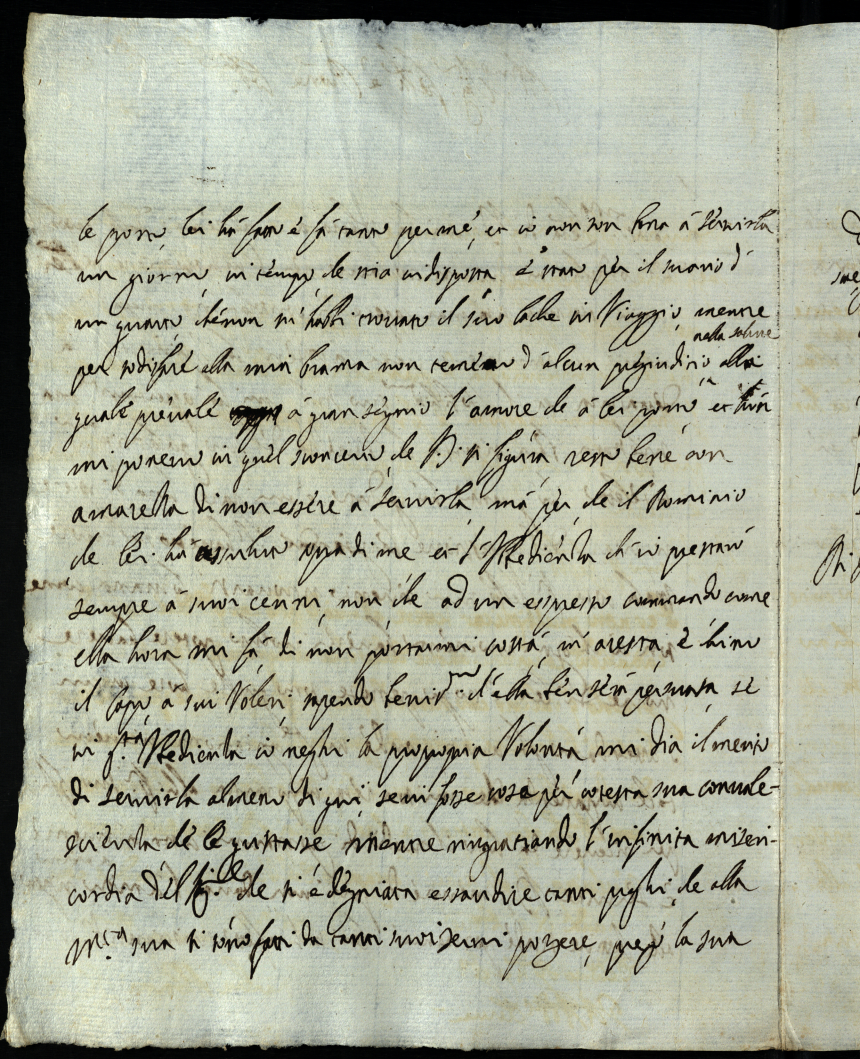 le porto, lei hà fatto e fà tanto per me, et io non son bona à servirla
un giorno, in tempo che stia indisposta è stato per il
un quarto, che non m'habbi trovato il suo lache in Viaggio, mentre
per sodisfare alla mia brama non temevo d'alcun pregiudicio nella salute alla
quale prevale à gran segnio l'amore che à lei porto et
mi ponevo in quel che si figura, resto bene con
amarezza di non essere à servirla, mà per che il Dominio
che lei hà assoluto sopra di me et l'Obedienza ch'io prestarò
sempre à suoi cenni, non che ad un espresso commando come
ella hora mi fà, di non portarmi costà, m'aresta, e chino
il capo a suoi Voleri sapendo ch'ella ben serà persuasa, se
in Obedienza io neghi la propria Volontà mi dia il merito
di servirla almeno di qui, se vi fosse cosa per cotesta sua convale-
scienza che le gustasse mentre ringratiando l'infinita miseri-
cordia del che si è degniata essaudire tanti prieghi che alla
sua si sono fatti da tanti suoi servi porgere, prego la sua